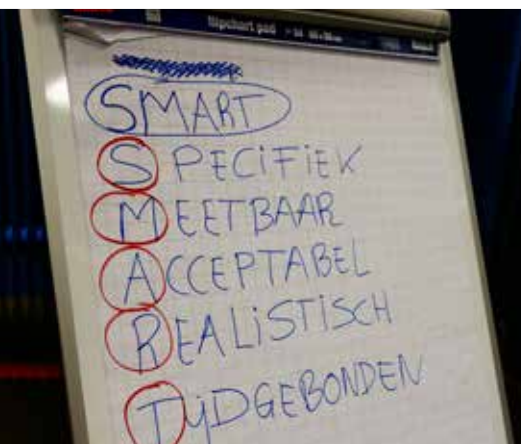 flipchart pad
SMART
SPECIFIEK
MEETBAAR
ACCEPTABEL
REALISTISCH
TIJDGEBONDEN